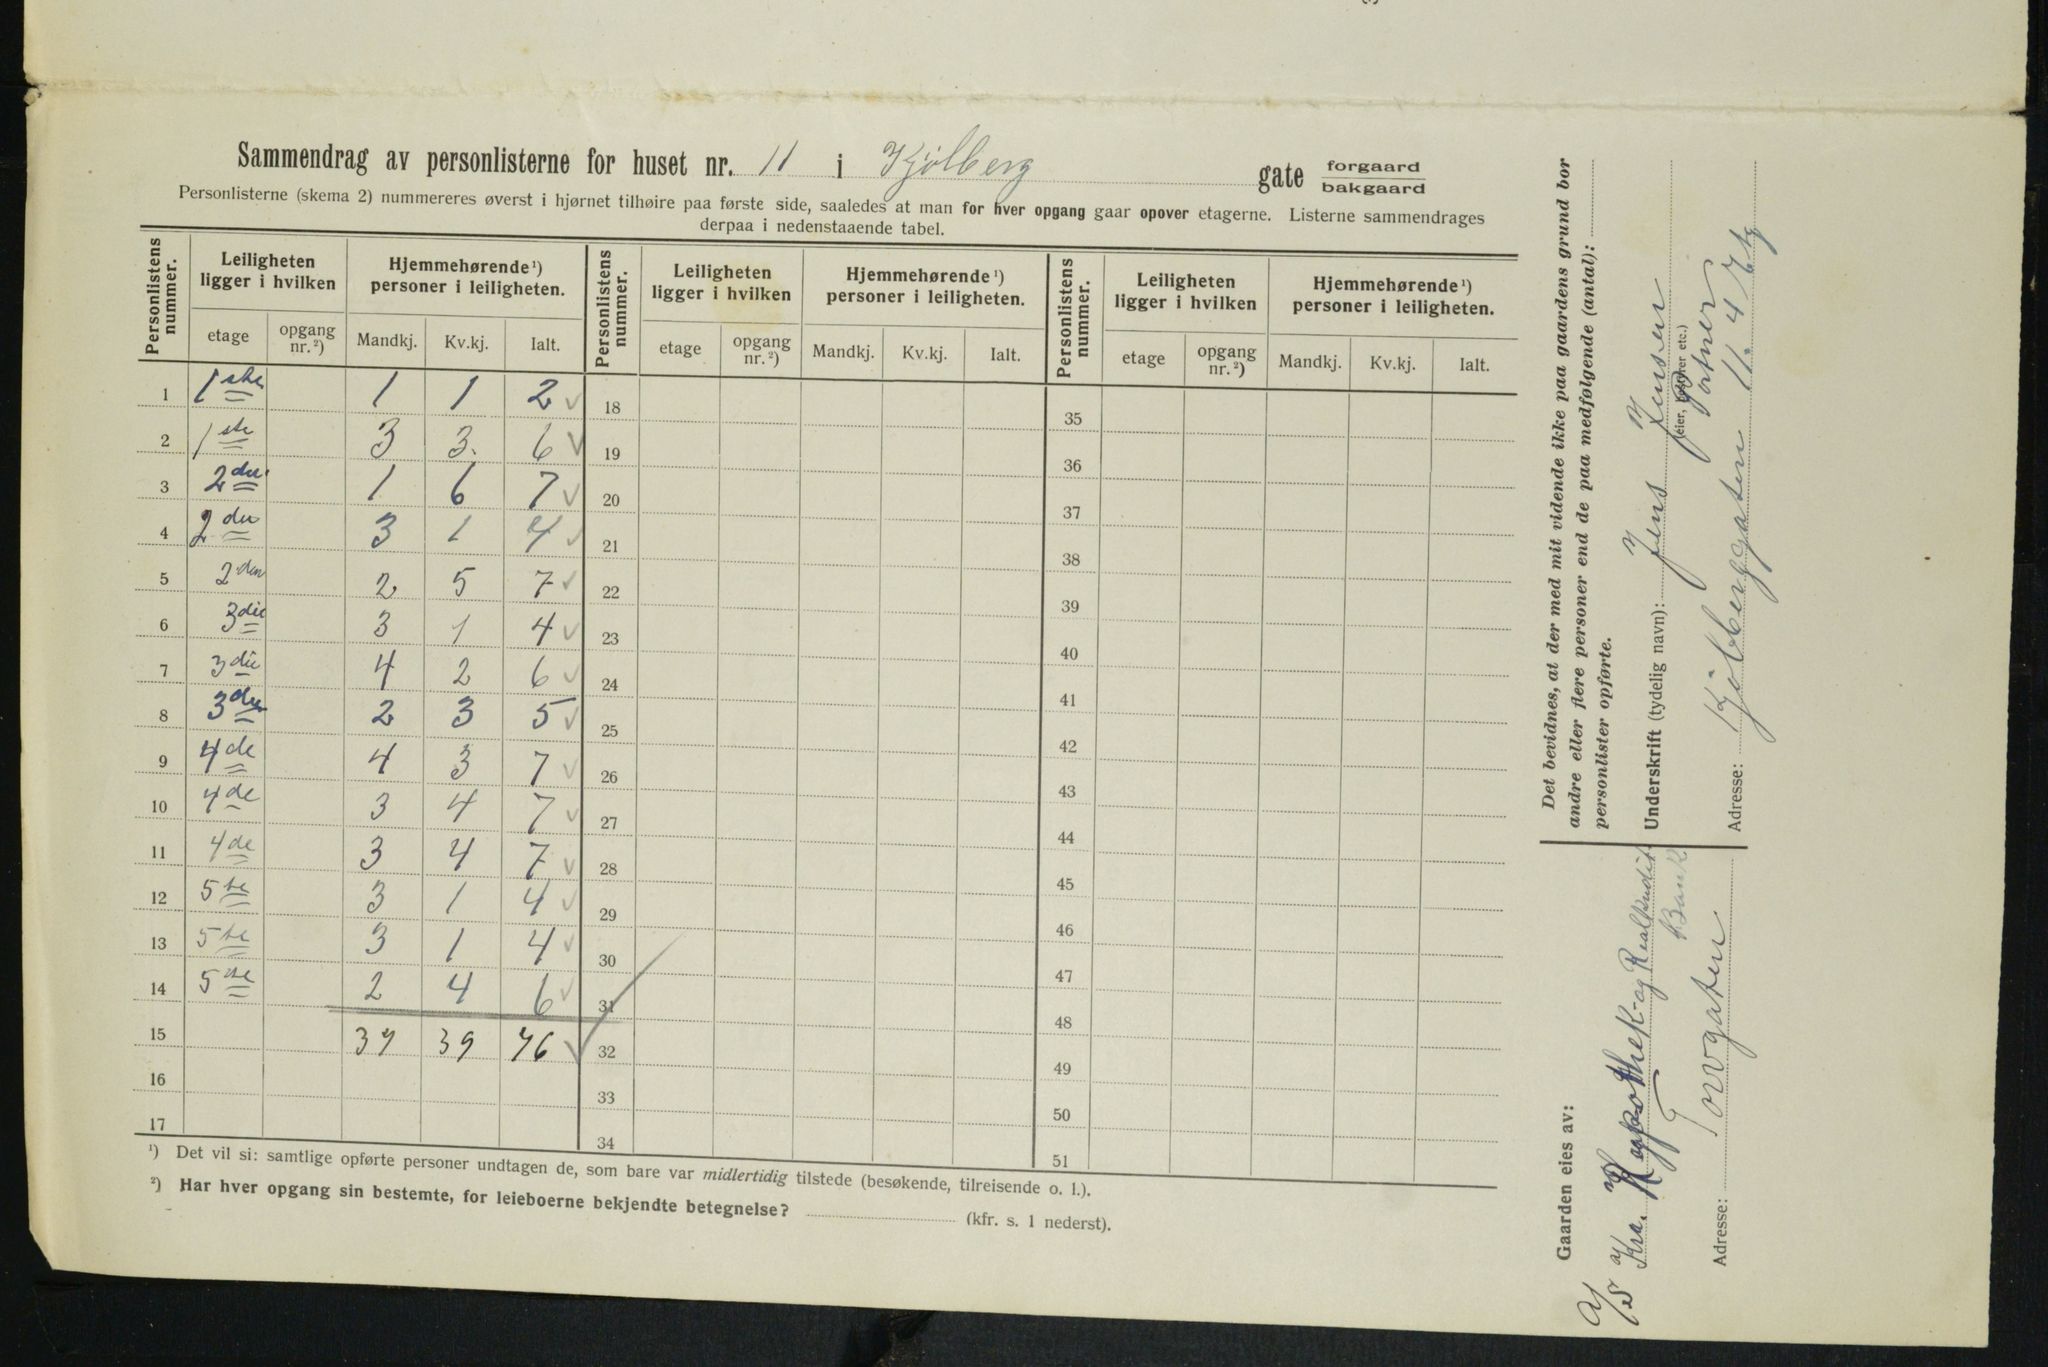 Sammendrag av personlisterne for huset nr. 11 i Kjølberg gate forgaard
bakgaard
Personlisterne (skema 2) nummereres øverst i hjørnet tilhøire paa første side, saaledes at man for hver opgang gaar opover etagerne. Listerne sammendrages
derpaa i nedenstaaende tabel.
Personlistens nummer. Leiligheten ligger i hvilken Hjemmehørende ¹) personer i leiligheten. Personlistens nummer. Leiligheten ligger i hvilken Hjemmehørende ¹) personer i leiligheten. Personlistens nummer. Leiligheten ligger i hvilken Hjemmehørende ¹) personer i leiligheten.
etage opgang nr. ²) Mandkj. Kv.kj. Ialt. etage opgang nr. ²) Mandkj. Kv.kj. Ialt. etage opgang nr. ²) Mandkj. Kv.kj. Ialt.
1 1ste 1 1 2 18 35
2 1ste 3 3. 6 19 36
3 2den 1 6 7 20 37
4 2den 3 1 4 21 38
5 2den 2 5 7 22 39
6 3die 3 1 4 23 40
7 3die 4 2 6 24 41
8 3die 2 3 5 25 42
9 4de 4 3 7 26 43
10 4de 3 4 7 27 44
11 4de 3 4 7 28 45
12 5te 3 1 4 29 46
13 5te 3 1 4 30 47
14 5te 2 4 6 31 48
15 37 39 76 32 49
16 33 50
17 34 51
¹) Det vil si: samtlige opførte personer undtagen de, som bare var midlertidig tilstede (besøkende, tilreisende o. l.).
²) Har hver opgang sin bestemte, for leieboerne bekjendte betegnelse? (kfr. s. 1 nederst).
Det bevidnes, at der med mit vidende ikke paa gaardens grund bor
andre eller flere personer end de paa medfølgende (antal):
personlister opførte.
Underskrift (tydelig navn): Jens Jensen
(eier, bestyrer etc.)
Adresse: Kjølberggaten 11. 4 Etg
Gaarden eies av:
A/S Kra. Hypothek- og Realkredit
Bank
Adresse: Torvgaten